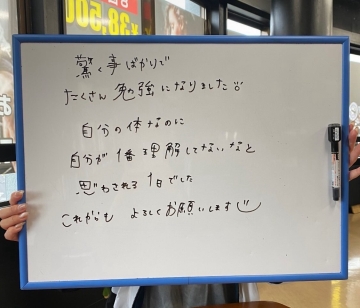 ¥38,500
驚く事ばかりで
たくさん勉強になりました
自分の体なのに
自分が1番理解してないなと
思わされる1日でした
これからも よろしくお願いします